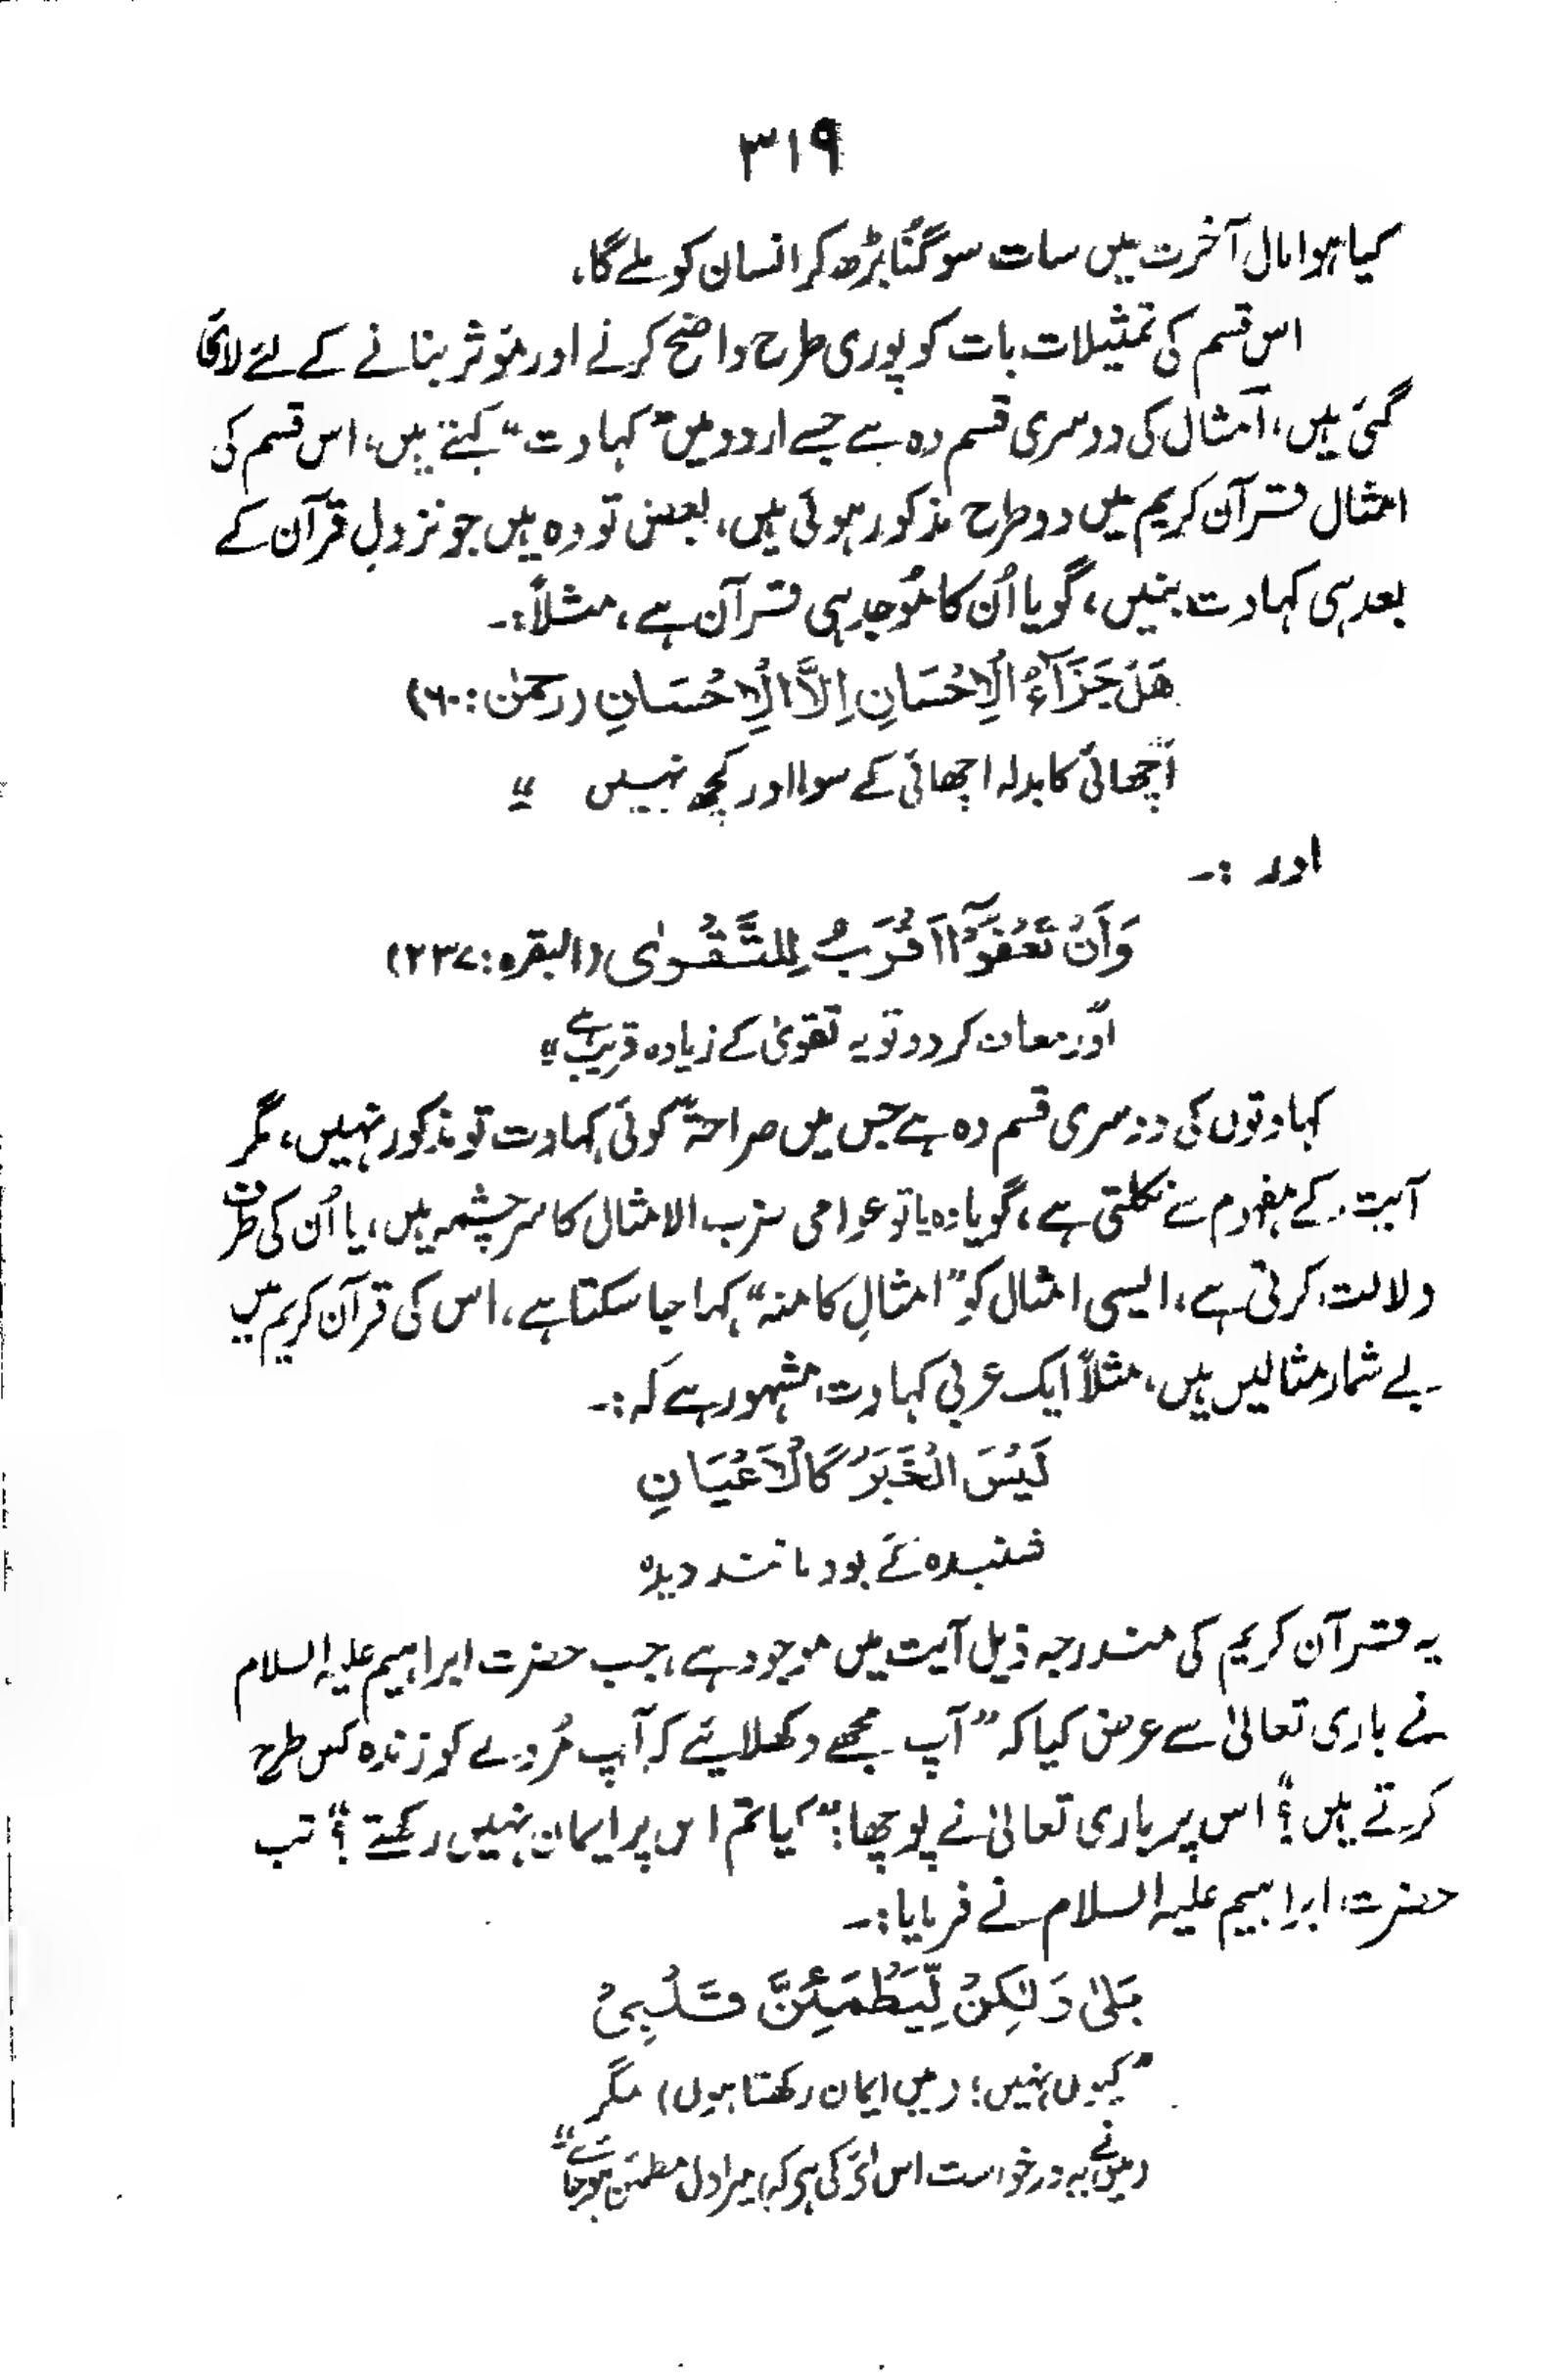 ۳۱۹
کیا ہوا مال آخرت میں سات سو گُنا بڑھ کر انسان کو ملے گا،
اس قسم کی تمثیلات بات کو پوری طرح واضح کرنے اور مؤثر بنانے کے لئے لائی
گئی ہیں، اَمثال کی دوسری قسم وہ ہے جسے اردو میں "کہاوت" کہتے ہیں، اس قسم کی
امثال قرآن کریم میں دو طرح مذکور ہوئی ہیں، بعض تو وہ ہیں جو نزولِ قرآن کے
بعد ہی کہاوت بنیں، گویا اُن کا مُوجد ہی قرآن ہے، مثلاً:۔
هَلْ جَزَآءُ الْاِحْسَانِ اِلَّا الْاِحْسَانِ (رحمٰن: ۶۰)
"اچھائی کا بدلہ اچھائی کے سوا اور کچھ نہیں"
اور :۔
وَاَنْ تَعْفُوْٓا اَقْرَبُ لِلتَّقْوٰی (البقرہ: ۲۳۷)
"اور معاف کر دو تو یہ تقویٰ کے زیادہ قریب ہے"
کہاوتوں کی دوسری قسم وہ ہے جس میں صراحۃً کوئی کہاوت تو مذکور نہیں، مگر
آیت کے مفہوم سے نکلتی ہے، گویا وہ یا تو عوامی ضرب الامثال کا سرچشمہ ہیں، یا اُن کی طرف
دلالت کرتی ہے، ایسی امثال کو "امثالِ کامنہ" کہا جا سکتا ہے، اس کی قرآن کریم میں
بے شمار مثالیں ہیں، مثلاً ایک عربی کہاوت مشہور ہے کہ:۔
لَیْسَ الْخَبَرُ کَالْاَعْیَانِ
شنیدہ کَے بود مانند دیدہ
یہ قرآن کریم کی مندرجہ ذیل آیت میں موجود ہے، جب حضرت ابراہیم علیہ السلام
نے باری تعالیٰ سے عرض کیا کہ "آپ مجھے دکھلایئے کہ آپ مُردے کو زندہ کس طرح
کرتے ہیں؟" اس پر باری تعالیٰ نے پوچھا: "کیا تم اس پر ایمان نہیں رکھتے؟" تب
حضرت ابراہیم علیہ السلام نے فرمایا:۔
بَلٰی وَلٰکِنْ لِّیَطْمَئِنَّ قَلْبِیْ
"کیوں نہیں؛ (میں ایمان رکھتا ہوں) مگر
(میں نے یہ درخواست اس لئے کی ہے کہ) میرا دل مطمئن ہو جائے"